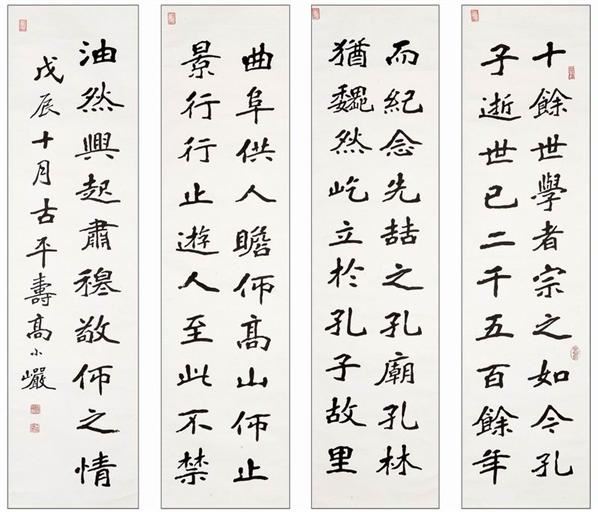 十餘世學者宗之如今孔
子逝世已二千五百餘年
而紀念先喆之孔廟孔林
猶巍然屹立於孔子故里
曲阜供人瞻仰髙山仰止
景行行止遊人至此不禁
油然興起肅穆敬仰之情
戊辰十月古平壽髙小巗